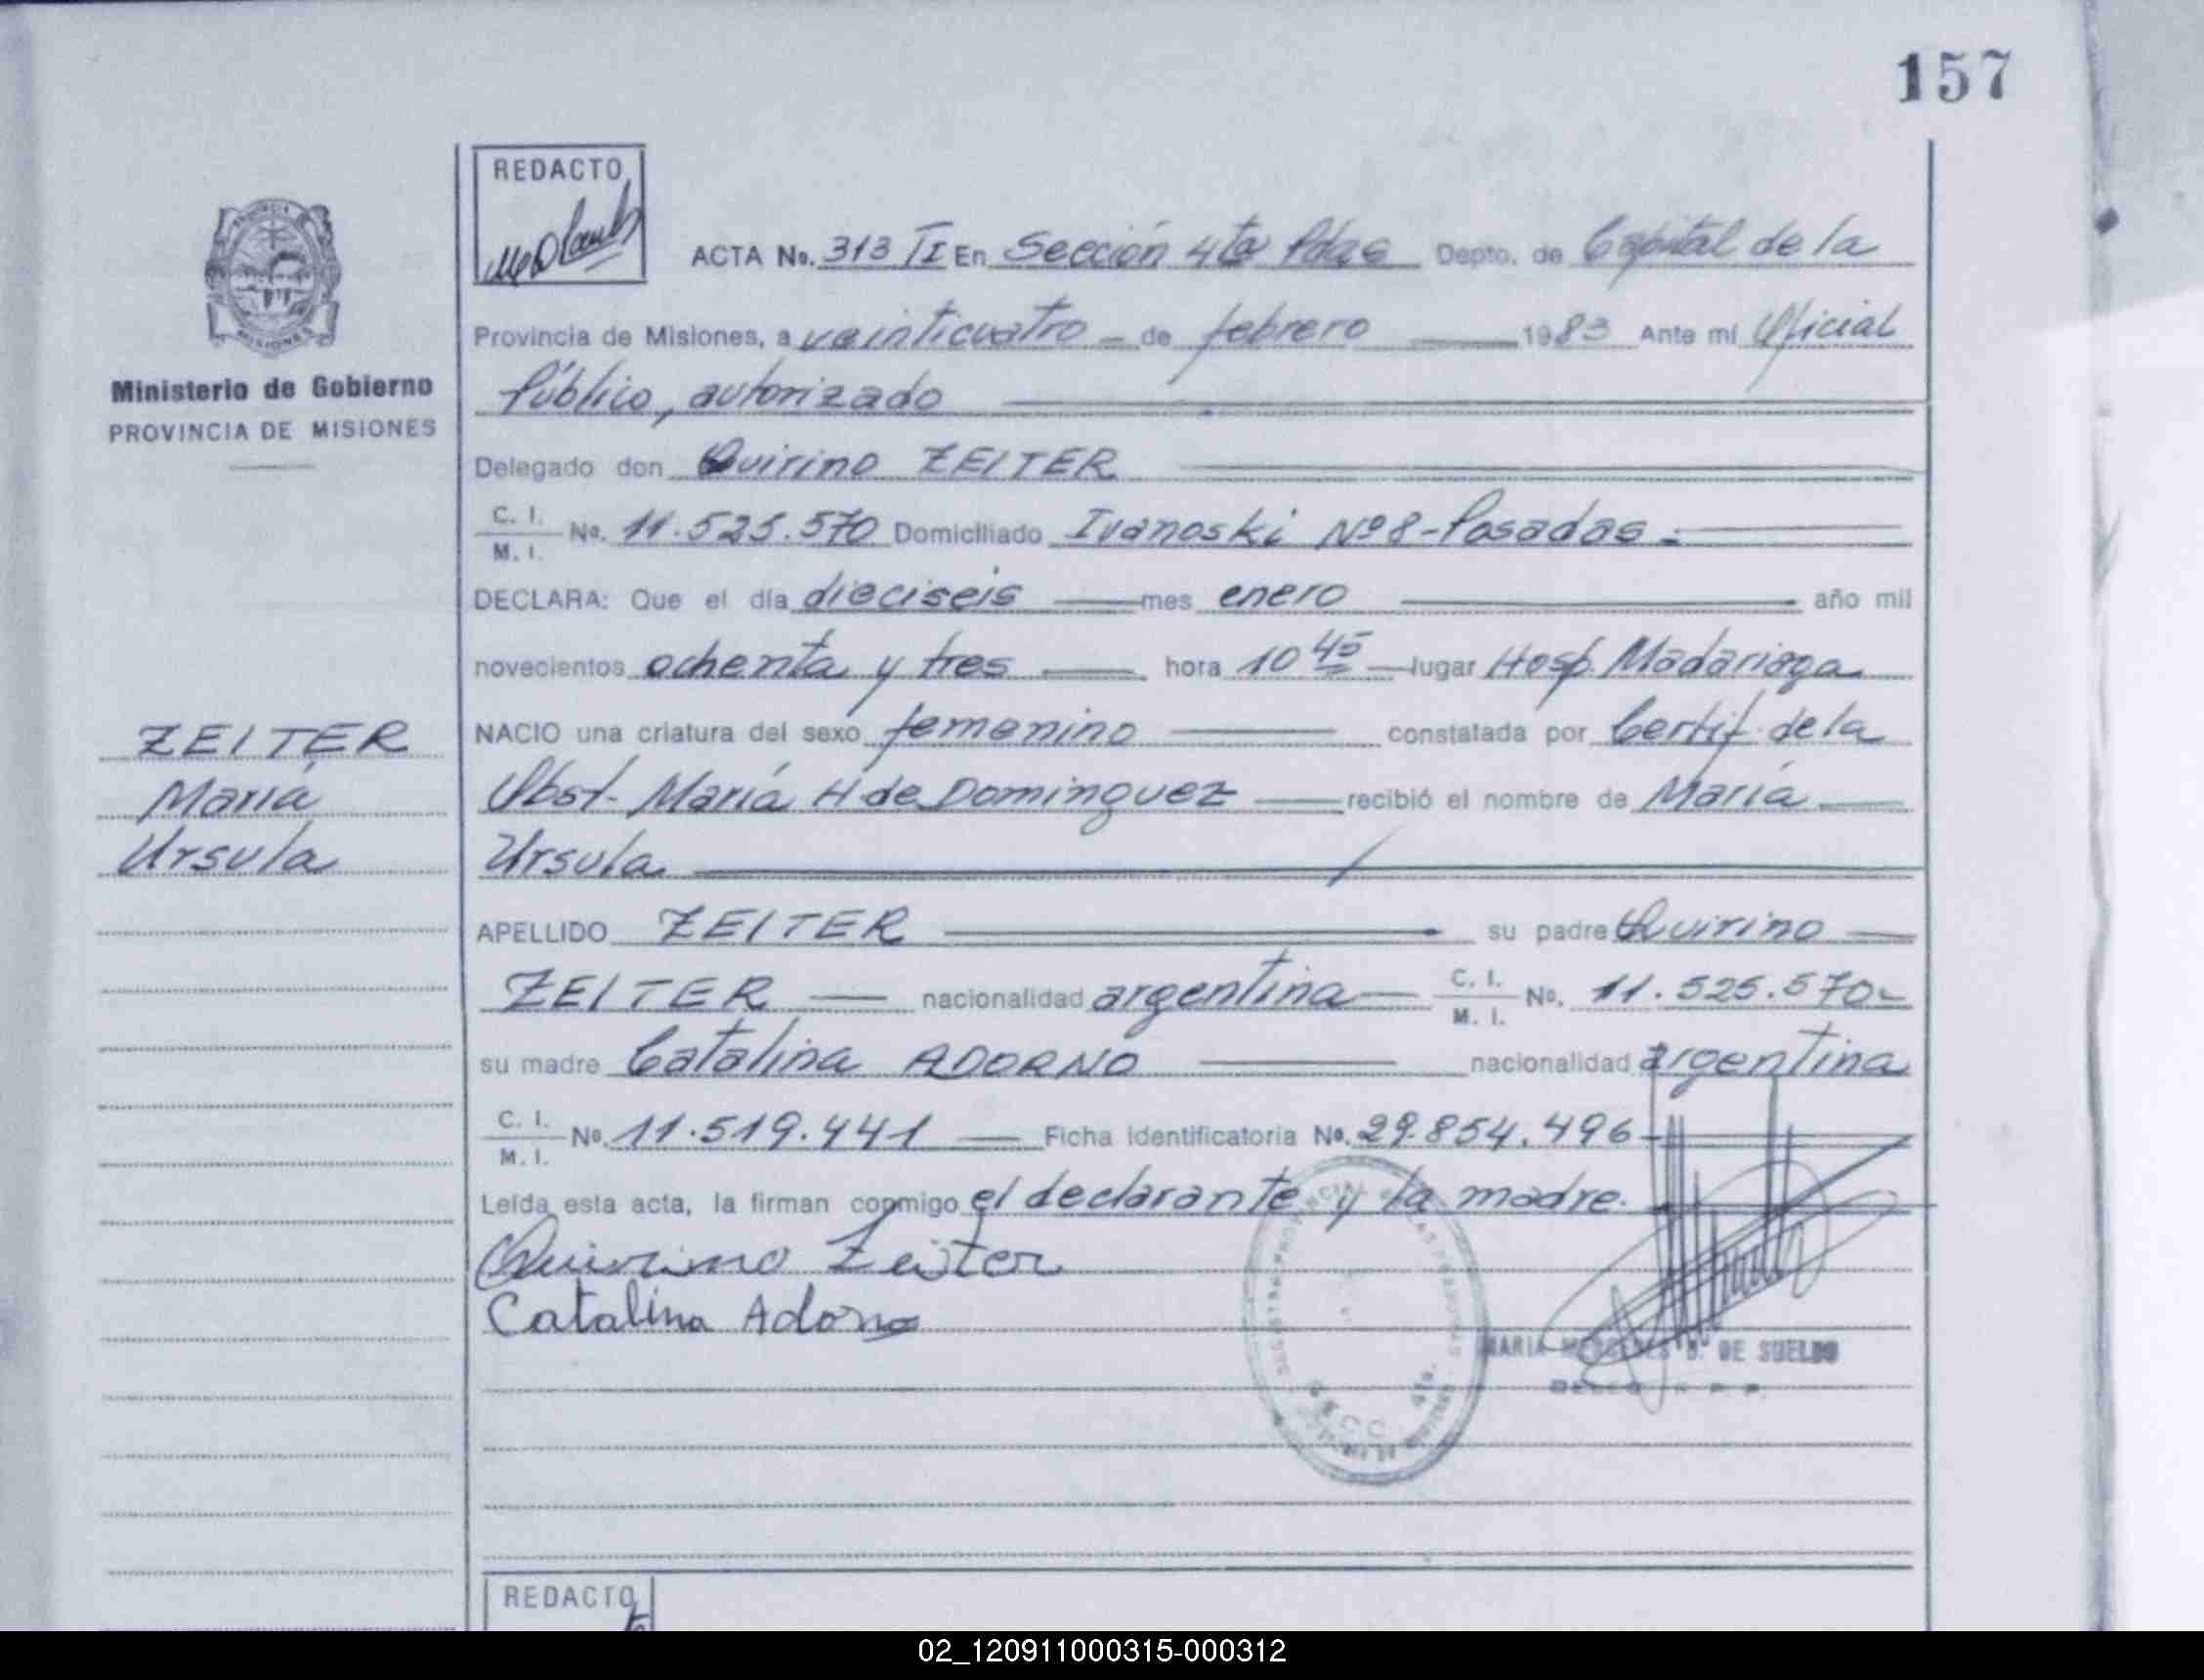 157
REDACTO
ACTA No. 313 TI En Sección 4ta Pdas Depto. de Capital de la
Provincia de Misiones, a veinticuatro de febrero 1983 Ante mí Oficial
Público, autorizado
Ministerio de Gobierno
PROVINCIA DE MISIONES
Delegado don Quirino ZEITER
C. I.
M. I. No. 11.525.570 Domiciliado Ivanoski Nº 8-Posadas.
DECLARA: Que el día dieciseis mes enero año mil
novecientos ochenta y tres hora 10 45 lugar Hosp. Madariaga
ZEITER
María
Ursula
NACIO una criatura del sexo femenino constatada por Certif. de la
Obst. María H de Dominguez recibió el nombre de María
Ursula
APELLIDO ZEITER su padre Quirino
ZEITER nacionalidad argentina C. I.
M. I. No. 11.525.570-
su madre Catalina ADORNO nacionalidad argentina
C. I.
M. I. No. 11.519.441 Ficha identificatoria No. 29.854.496
Leída esta acta, la firman conmigo el declarante y la madre.
Quirino Zeiter
Catalina Adorno
MARIA MERCEDES B. DE SUELDO
REDACTO
02_120911000315-000312